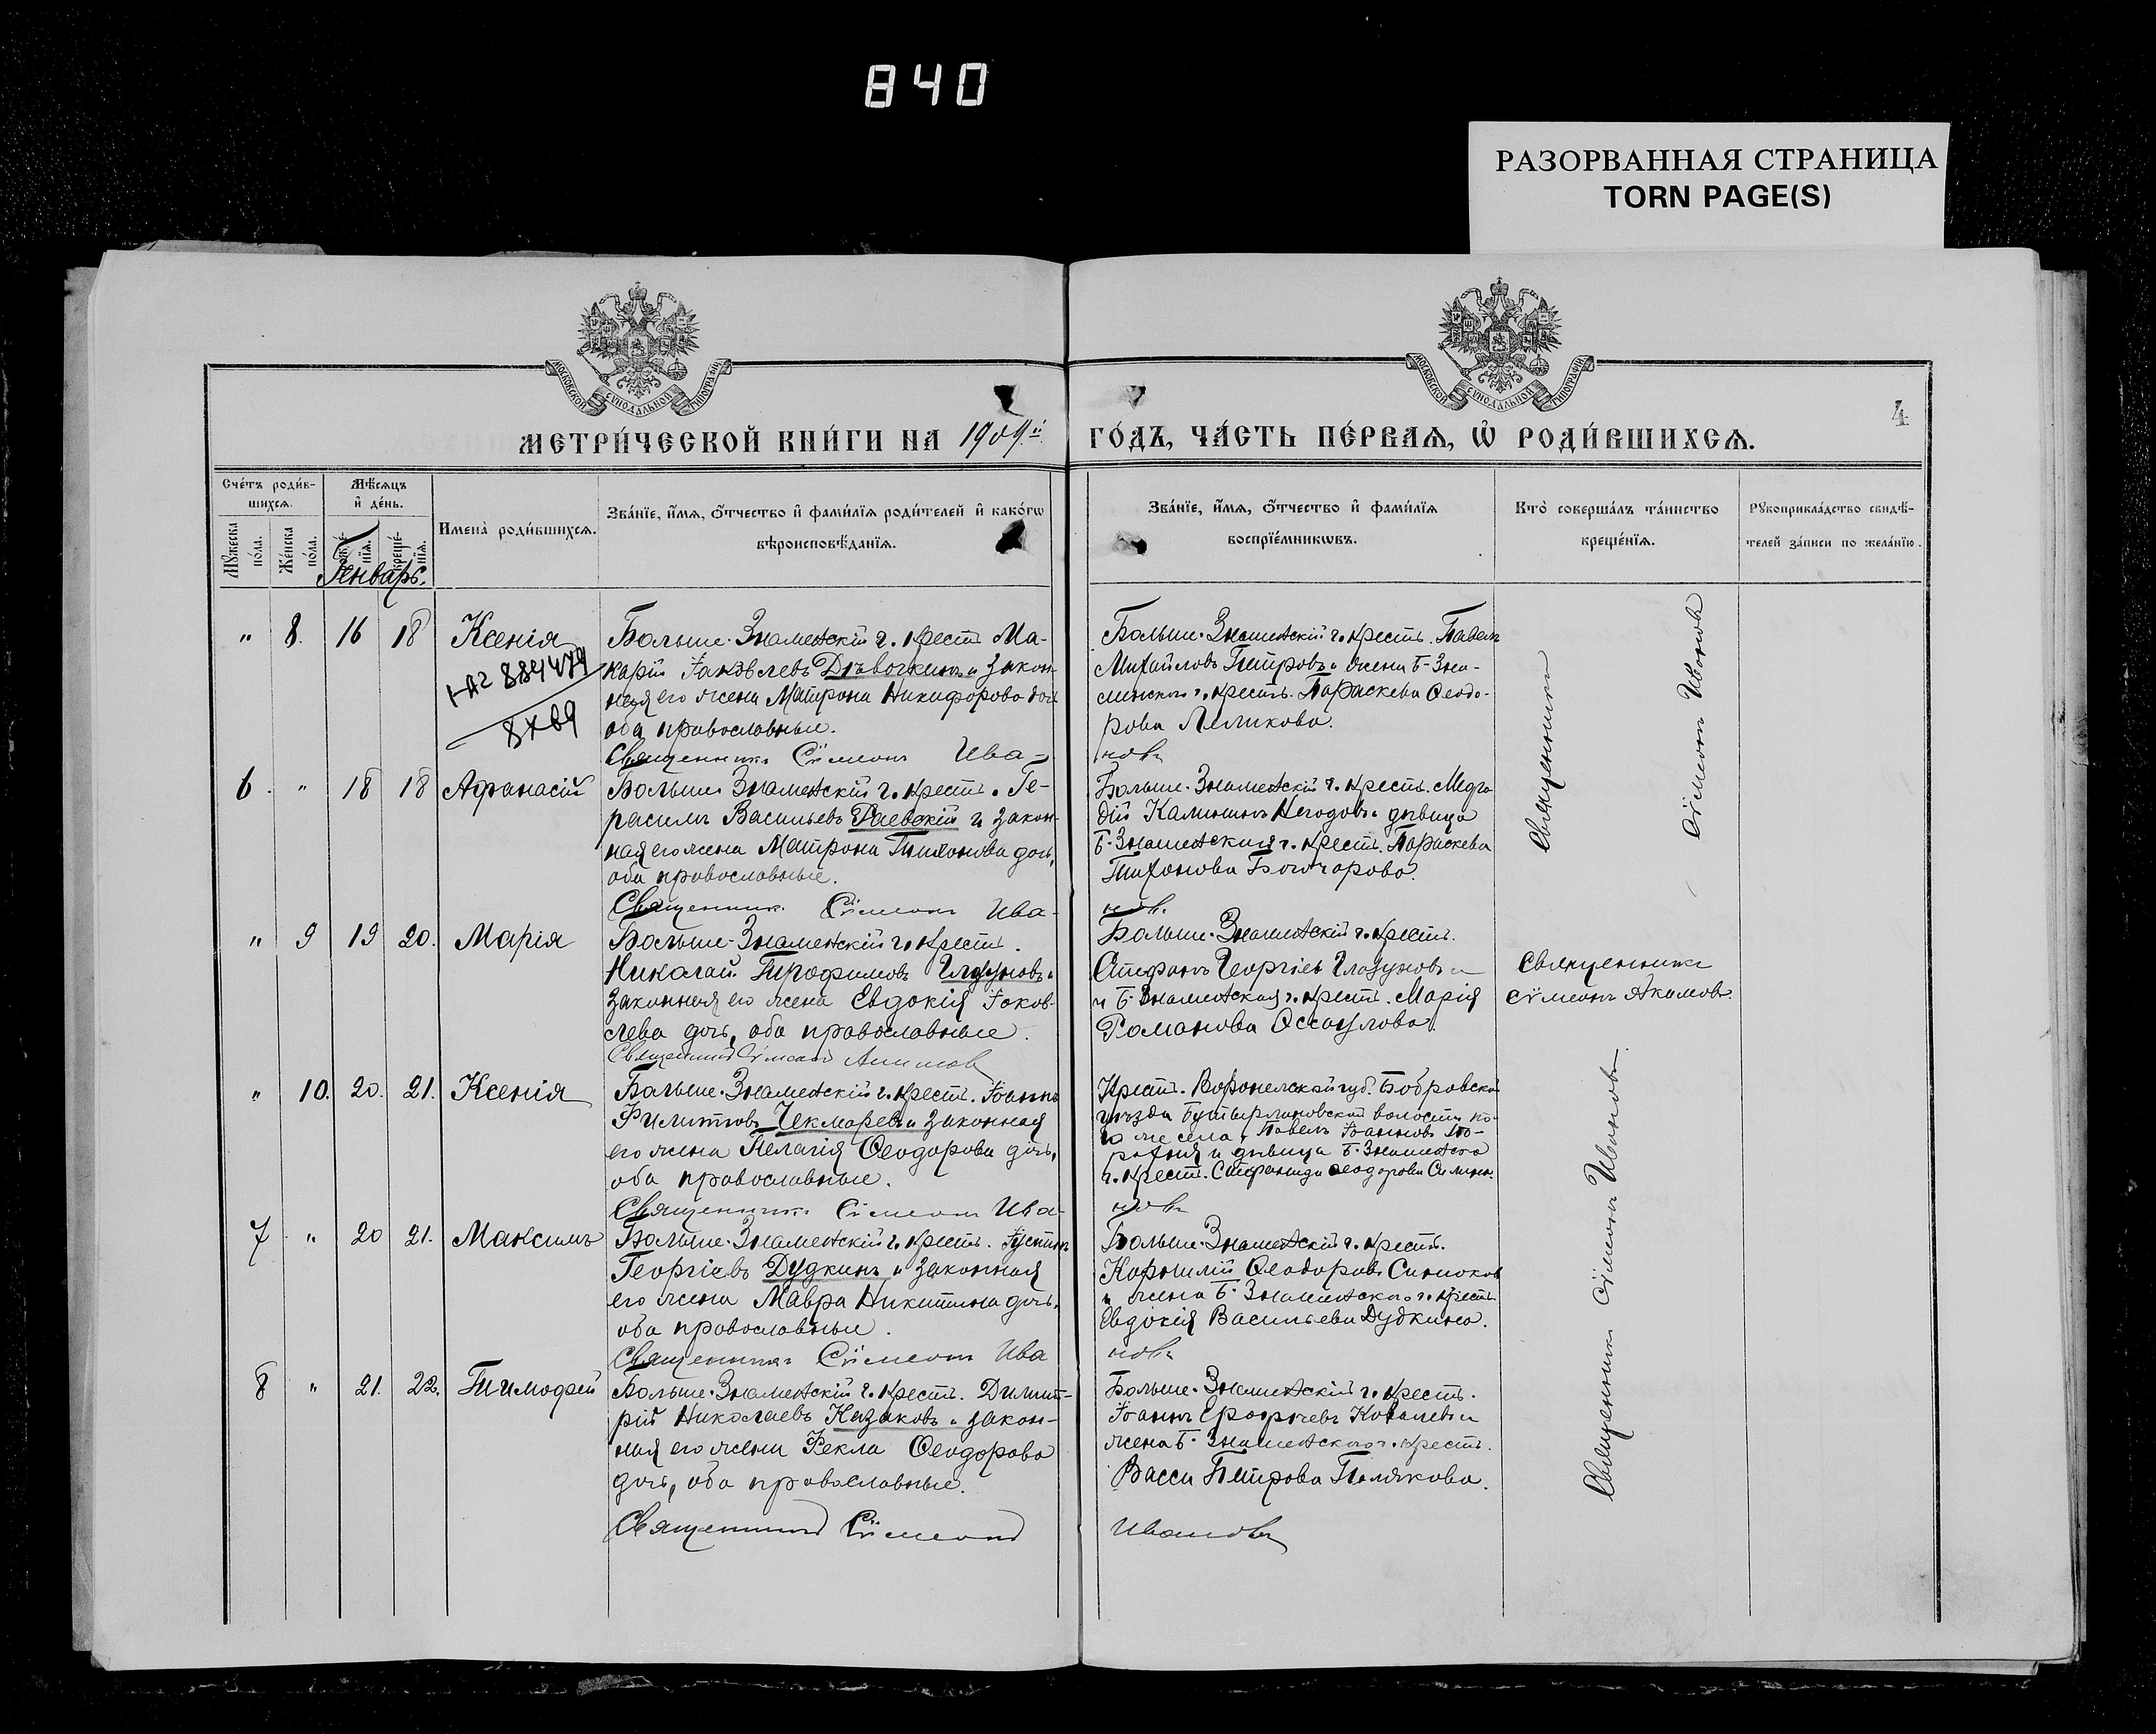 840
РАЗОРВАННАЯ СТРАНИЦА
TORN PAGE(S)
МОСКОВСКОЙ СѴНОДАЛЬНОЙ ТИПОГРАФІИ
МОСКОВСКОЙ СѴНОДАЛЬНОЙ ТИПОГРАФІИ
4
МЕТРИ́ЧЕСКОЙ КНИ́ГИ НА 1909й ГО́ДЪ, ЧА́СТЬ ПЕ́РВАѦ, Ѡ҆ РОДИ́ВШИХСѦ.
Сче́тъ роди́в-
шихсѧ.
Мꙋжеска по́ла.
Же́нска по́ла.
Мѣ́сѧцъ
и҆ де́нь.
креще́-нїѧ.
Январь.
Имена̀ роди́вшихсѧ.
Зва́нїе, и҆́мѧ, ѻ҆́тчество и҆ фами́лїѧ роди́телей и҆ како́гѡ
вѣроисповѣ́данїѧ.
Зва́нїе, и҆́мѧ, ѻ҆́тчество и҆ фами́лїѧ
воспрїе́мникѡвъ.
Кто̀ соверша́лъ та́инство
креще́нїѧ.
Рꙋкоприкла́дство свидѣ́-
телей за́писи по жела́нїю.
" 8. 16 18 Ксенія
884479
8 х 69
Больше-Знаменскій г. крест. Ма-
карій Іаковлевъ Дѣвочкинъ и закон-
ная его жена Матрона Никифорова доч
оба православные.
Священникъ Сѵмеонъ Ива-
Больше-Знаменскій г. крестъ. Павелъ
Михайловъ Петровъ и жена Б-Зна-
менского г. крестъ. Параскева Ѳеодо-
рова
новъ
6. " 18 18 Афанасій
Больше Знаменскій г. крестъ. Ге-
расимъ Васильевъ Раевскій и закон-
ная его жена Матрона Тихонова дочь,
оба православные.
Священникъ Сѵмеонъ Ива-
Больше-Знаменскій г. крестъ.
дій Калининъ Негодовъ и дѣвица
Б-Знаменская г. крест. Параскева
Тихонова Бончарова.
новъ.
Священникъ
Сѵмеонъ Ивановъ
" 9 19 20. Марія
Больше-Знаменскій г. крестъ.
Николай Трофимовъ Глазуновъ и
законная его жена Евдокія Іаков-
лева дочь, оба православные.
Священникъ Сѵмеонъ Акимов
Больше-Знаменскій г. крестъ.
Стефанъ Георгіев Глазуновъ и
и Б-Знаменская г. крестъ. Марія
Романова Оссаулова.
Священникъ
Сѵмеонъ Акимовъ.
" 10. 20. 21. Ксенія
Больше-Знаменскій г. крестъ. Іоаннъ
Филиповъ Чекмаревъ и законная
его жена Пелагія Ѳеодорова дочь,
оба православные.
Священникъ Сѵмеонъ Ива-
Крест. Воронежской губ. Бобровска
уѣзда Бутырлиновской волости
же села, Павелъ Іоанновъ
и дѣвица Б-Знаменска
г. крест. Стефанида Ѳеодорова
новъ
7. " 20 21. Максимъ
Больше-Знаменскій г. крестъ. Іустинъ
Георгіевъ Дудкинъ и законная
его жена Мавра Никитина дочь,
оба православные.
Священникъ Сѵмеонъ Ива
Больше-Знаменскій г. крестъ.
Корнилій Ѳеодоровъ Синюков
и жена Б-Знаменского г. крестъ
Евдокія Васильева Дудкина.
новъ
8 " 21. 22. Тимофей
Больше-Знаменскій г. крестъ. Димит-
рій Николаевъ Казаковъ и закон-
ная его жена Фекла Ѳеодорова
дочь, оба православные.
Священникъ Сѵмеонъ
Больше-Знаменскій г. крестъ.
Іоаннъ Ерофеевъ Ковалевъ и
жена Б-Знаменского г. крестъ.
Васса Петрова Полякова.
Ивановъ
Священникъ Сѵмеонъ Ивановъ.